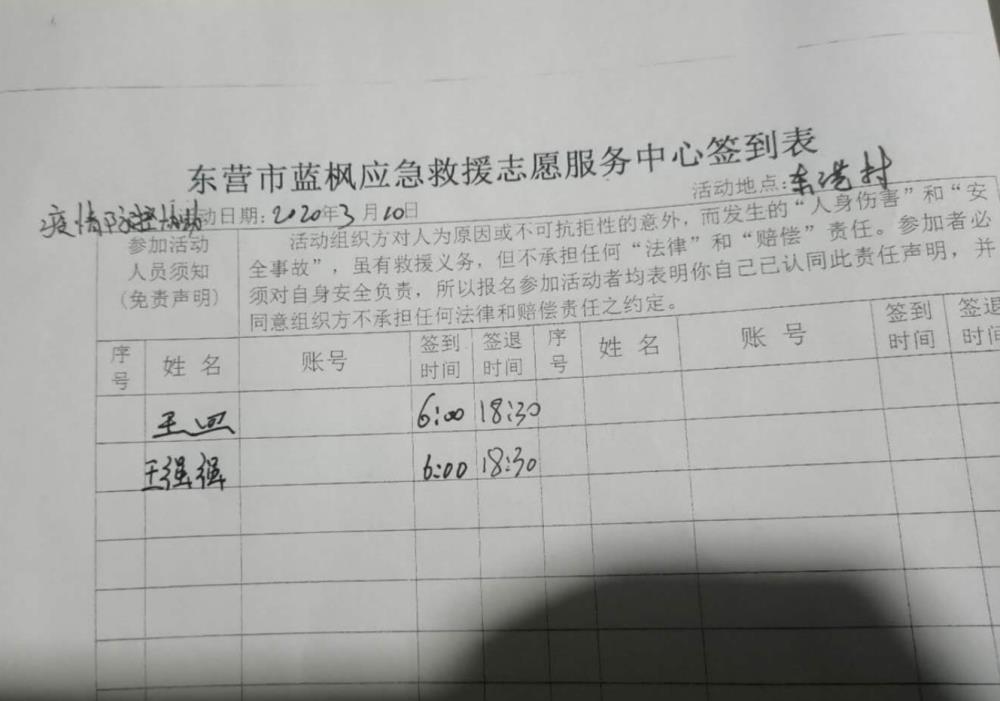 东营市蓝枫应急救援志愿服务中心签到表
疫情防控活动动日期：2020年3月10日 活动地点：东洗村
参加活动
人员须知
(免责声明)
活动组织方对人为原因或不可抗拒性的意外，而发生的“人身伤害”和“安
全事故”，虽有救援义务，但不承担任何“法律”和“赔偿”责任。参加者必
须对自身安全负责，所以报名参加活动者均表明你自己已认同此责任声明，并
同意组织方不承担任何法律和赔偿责任之约定。
序号 姓名 账号 签到时间 签退时间 序号 姓名 账号 签到时间 签退时间
王四 6:00 18:30
王强强 6:00 18:30